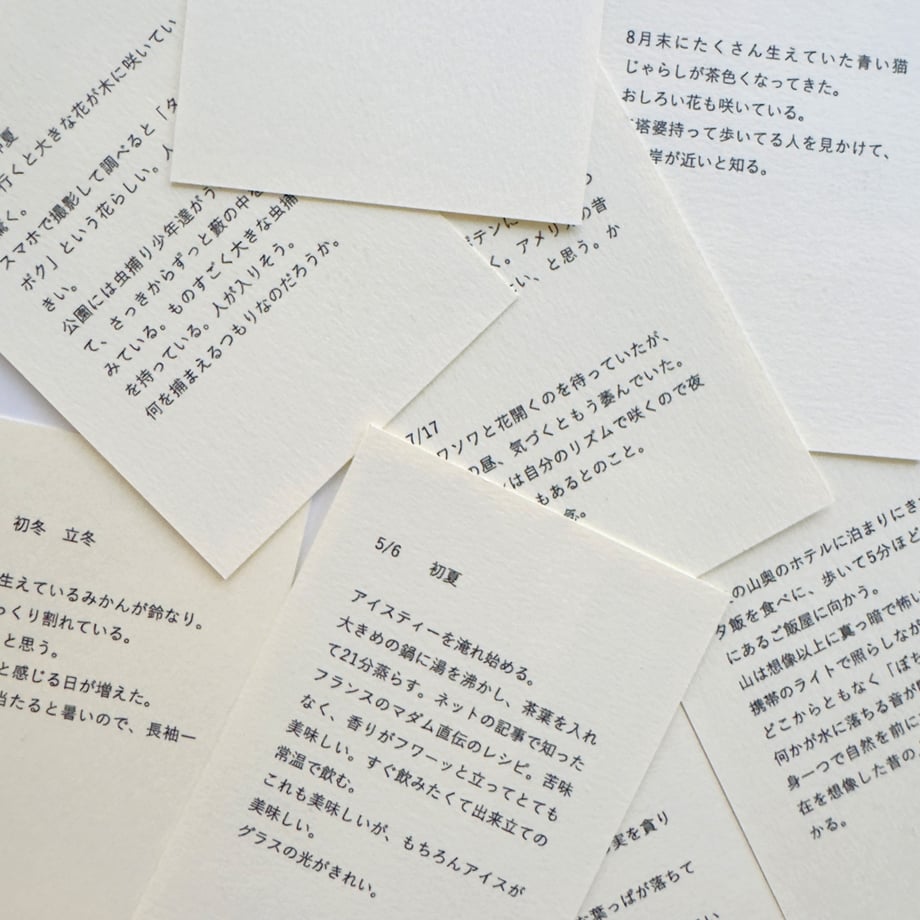 行くと大きな花が木に咲いてい
驚く。
スマホで撮影して調べると「タ
ボク」という花らしい。人
きい。
公園には虫捕り少年達がう
て、さっきからずっと藪の中を
みている。ものすごく大きな虫捕
を持っている。人が入りそう。
何を捕まえるつもりなのだろうか。
8月末にたくさん生えていた青い猫
じゃらしが茶色くなってきた。
おしろい花も咲いている。
塔婆持って歩いてる人を見かけて、
岸が近いと知る。
の
ボテンに
く。アメリカの昔
たい、と思う。か
7/17
ワソワと花開くのを待っていたが、
の昼、気づくともう萎んでいた。
は自分のリズムで咲くので夜
もあるとのこと。
初冬 立冬
生えているみかんが鈴なり。
っくり割れている。
と思う。
と感じる日が増えた。
当たると暑いので、長袖一
5/6
初夏
アイスティーを淹れ始める。
大きめの鍋に湯を沸かし、茶葉を入れ
て21分蒸らす。ネットの記事で知った
フランスのマダム直伝のレシピ。苦味
なく、香りがフワーッと立ってとても
美味しい。すぐ飲みたくて出来立ての
常温で飲む。
これも美味しいが、もちろんアイスが
美味しい。
グラスの光がきれい。
の山奥のホテルに泊まりにき
夕飯を食べに、歩いて5分ほど
にあるご飯屋に向かう。
山は想像以上に真っ暗で怖い
携帯のライトで照らしなが
どこからともなく「ぽち
何かが水に落ちる音が
身一つで自然を前に
在を想像した昔の
かる。
実を貪り
な葉っぱが落ちて